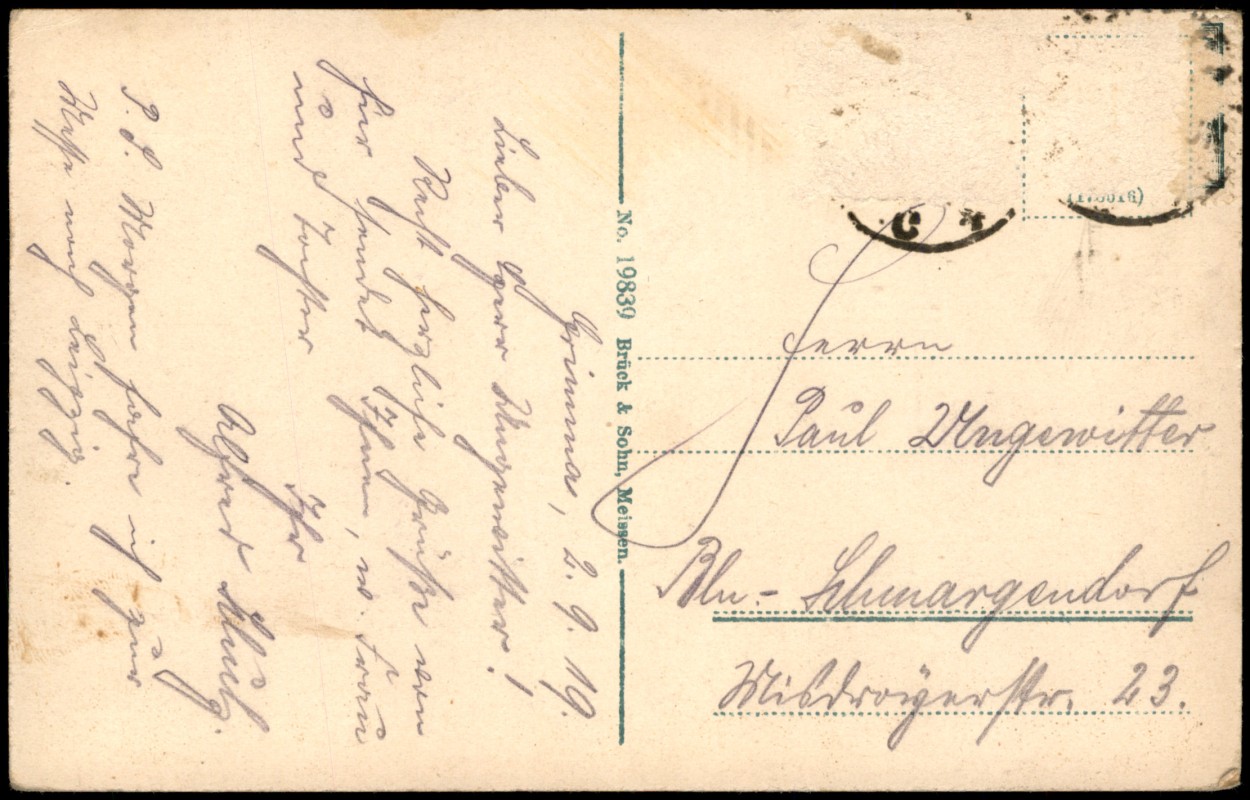 Grimma, 2. 9. 19.
Lieber Herr Ungewitter!
Recht herzliche Grüße von
hier sendet Ihnen, w. Frau
und Tochter
Ihr
Alfred
P.S. Morgen fahre ich zur
Messe nach Leipzig.
No. 19839 Brück & Sohn, Meissen.
Herrn
Paul Ungewitter
Bln.- Schmargendorf
Misdroyerstr. 23.